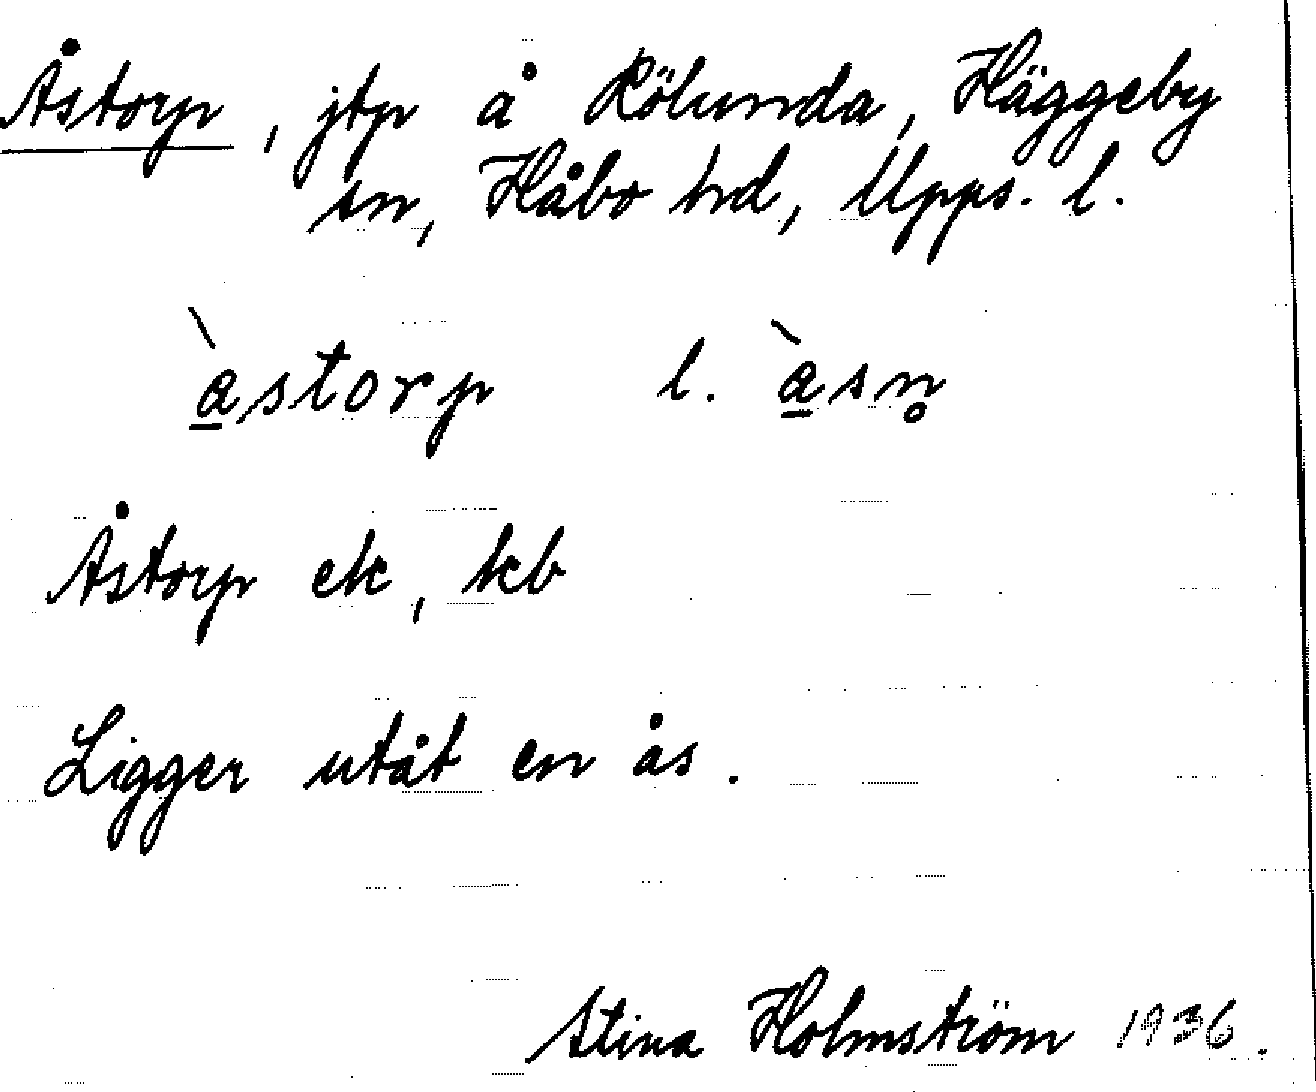 Åstorp, jtp å Rölunda, Häggeby
sn, Håbo hd, Upps. l.
àstorp l. àsn̥
Åstorp ek, kb
Ligger utåt en ås.
Stina Holmström 1936.